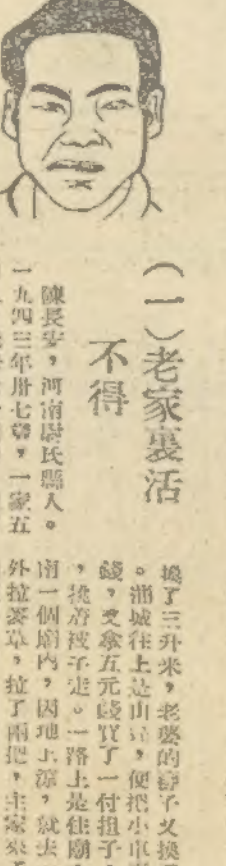 （一）老家裏活
不得
陳長安，河南尉氏縣人。
一九四三年卅七歲，一家五
換了三升米，老婆的
子又換
。蒲城往上是山
，便把小車
錢，又拿五元錢買了一付担子
，挑着被子走。一路上是住廟
南一個廟內，因地上涼，就去
外拉麥草，拉了兩把，主家來